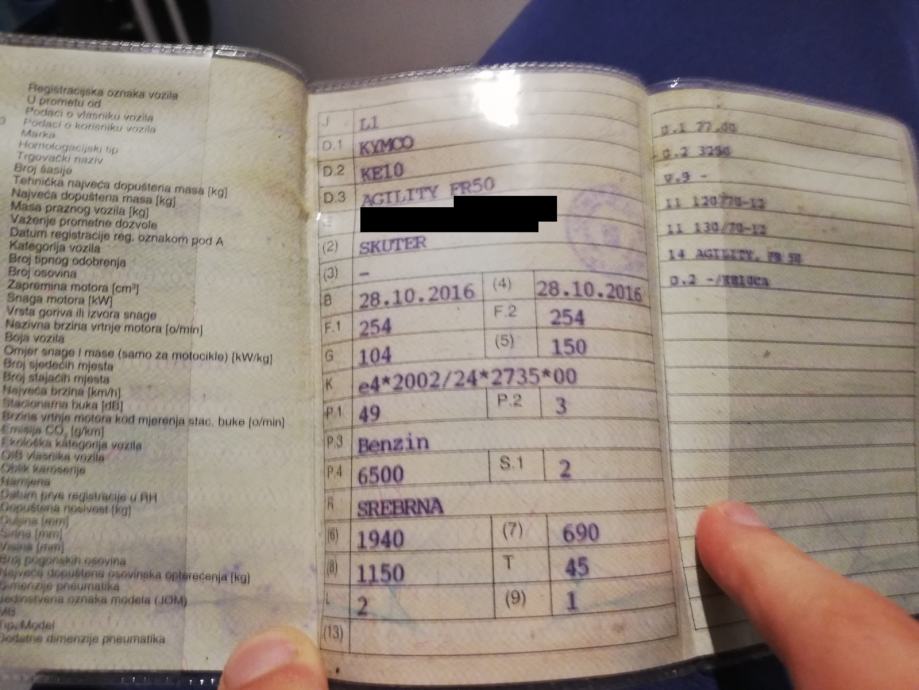 Registracijska oznaka vozila
U prometu od
Podaci o vlasniku vozila
Podaci o korisniku vozila
Marka
Homologacijski tip
Trgovački naziv
Broj šasije
Tehnička najveća dopuštena masa [kg]
Najveća dopuštena masa [kg]
Masa praznog vozila [kg]
Važenje prometne dozvole
Datum registracije reg. oznakom pod A
Kategorija vozila
Broj tipnog odobrenja
Broj osovina
Zapremina motora [cm³]
Snaga motora [kW]
Vrsta goriva ili izvora snage
Nazivna brzina vrtnje motora [o/min]
Boja vozila
Omjer snage i mase (samo za motocikle) [kW/kg]
Broj sjedećih mjesta
Broj stajaćih mjesta
Najveća brzina [km/h]
Stacionarna buka [dB]
Brzina vrtnje motora kod mjerenja stac. buke [o/min]
Emisija CO₂ [g/km]
Ekološka kategorija vozila
OIB vlasnika vozila
Oblik karoserije
Namjena
Datum prve registracije u RH
Dopuštena nosivost [kg]
Duljina [mm]
Širina [mm]
Visina [mm]
Broj pogonskih osovina
Najveća dopuštena osovinska opterećenja [kg]
Dimenzije pneumatika
Jedinstvena oznaka modela (JOM)
MB
Tip, Model
Dodatne dimenzije pneumatika
J L1
D.1 KYMCO
D.2 KE10
D.3 AGILITY FR50
(2) SKUTER
(3) -
B 28.10.2016 (4) 28.10.2016
F.1 254 F.2 254
G 104 (5) 150
K e4*2002/24*2735*00
P.1 49 P.2 3
P.3 Benzin
P.4 6500 S.1 2
R SREBRNA
(6) 1940 (7) 690
(8) 1150 T 45
L 2 (9) 1
(13)
U.1 77.00
U.2 3250
V.9 -
11 120/70-12
11 130/70-12
14 AGILITY, FR 50